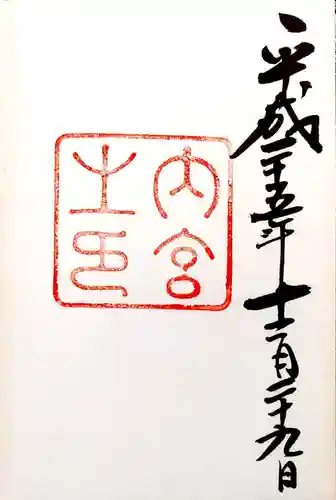 平成二十五年十二月二十九日
内宮
之印